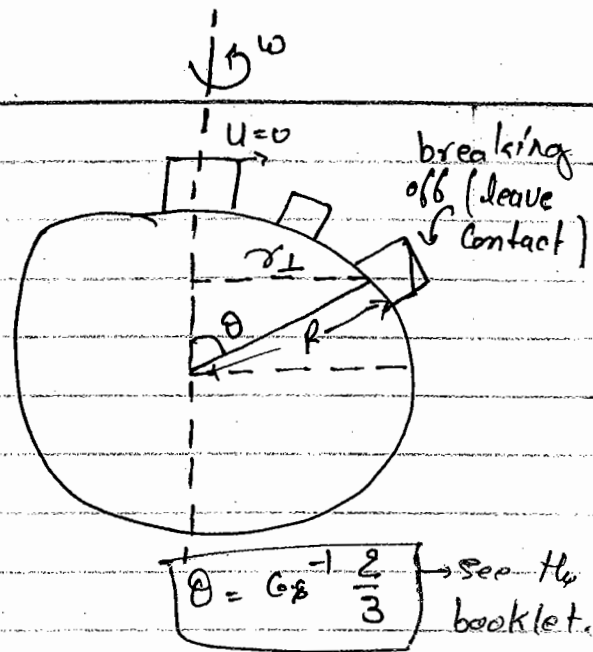 ω
u=0
breaking
off (leave
contact)
r⊥
θ
R
θ = Cos⁻¹ 2/3 → see the
booklet.